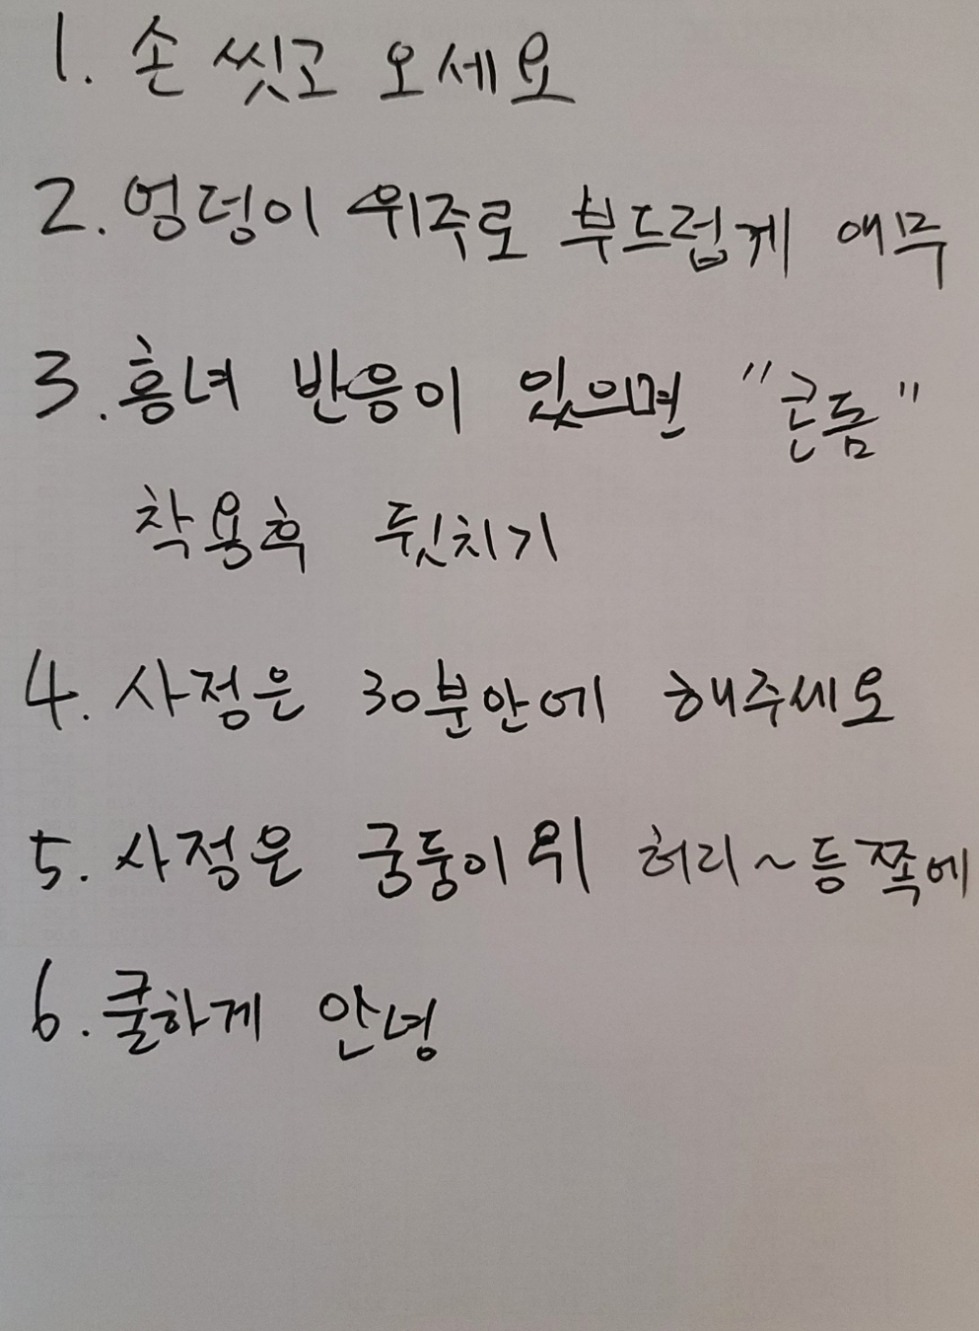 1. 손 씻고 오세요
2. 엉덩이 위주로 부드럽게 애무
3. 흥녀 반응이 있으면 "콘돔"
착용후 뒷치기
4. 사정은 30분안에 해주세요
5. 사정은 궁둥이 위 허리~등쪽에
6. 쿨하게 안녕